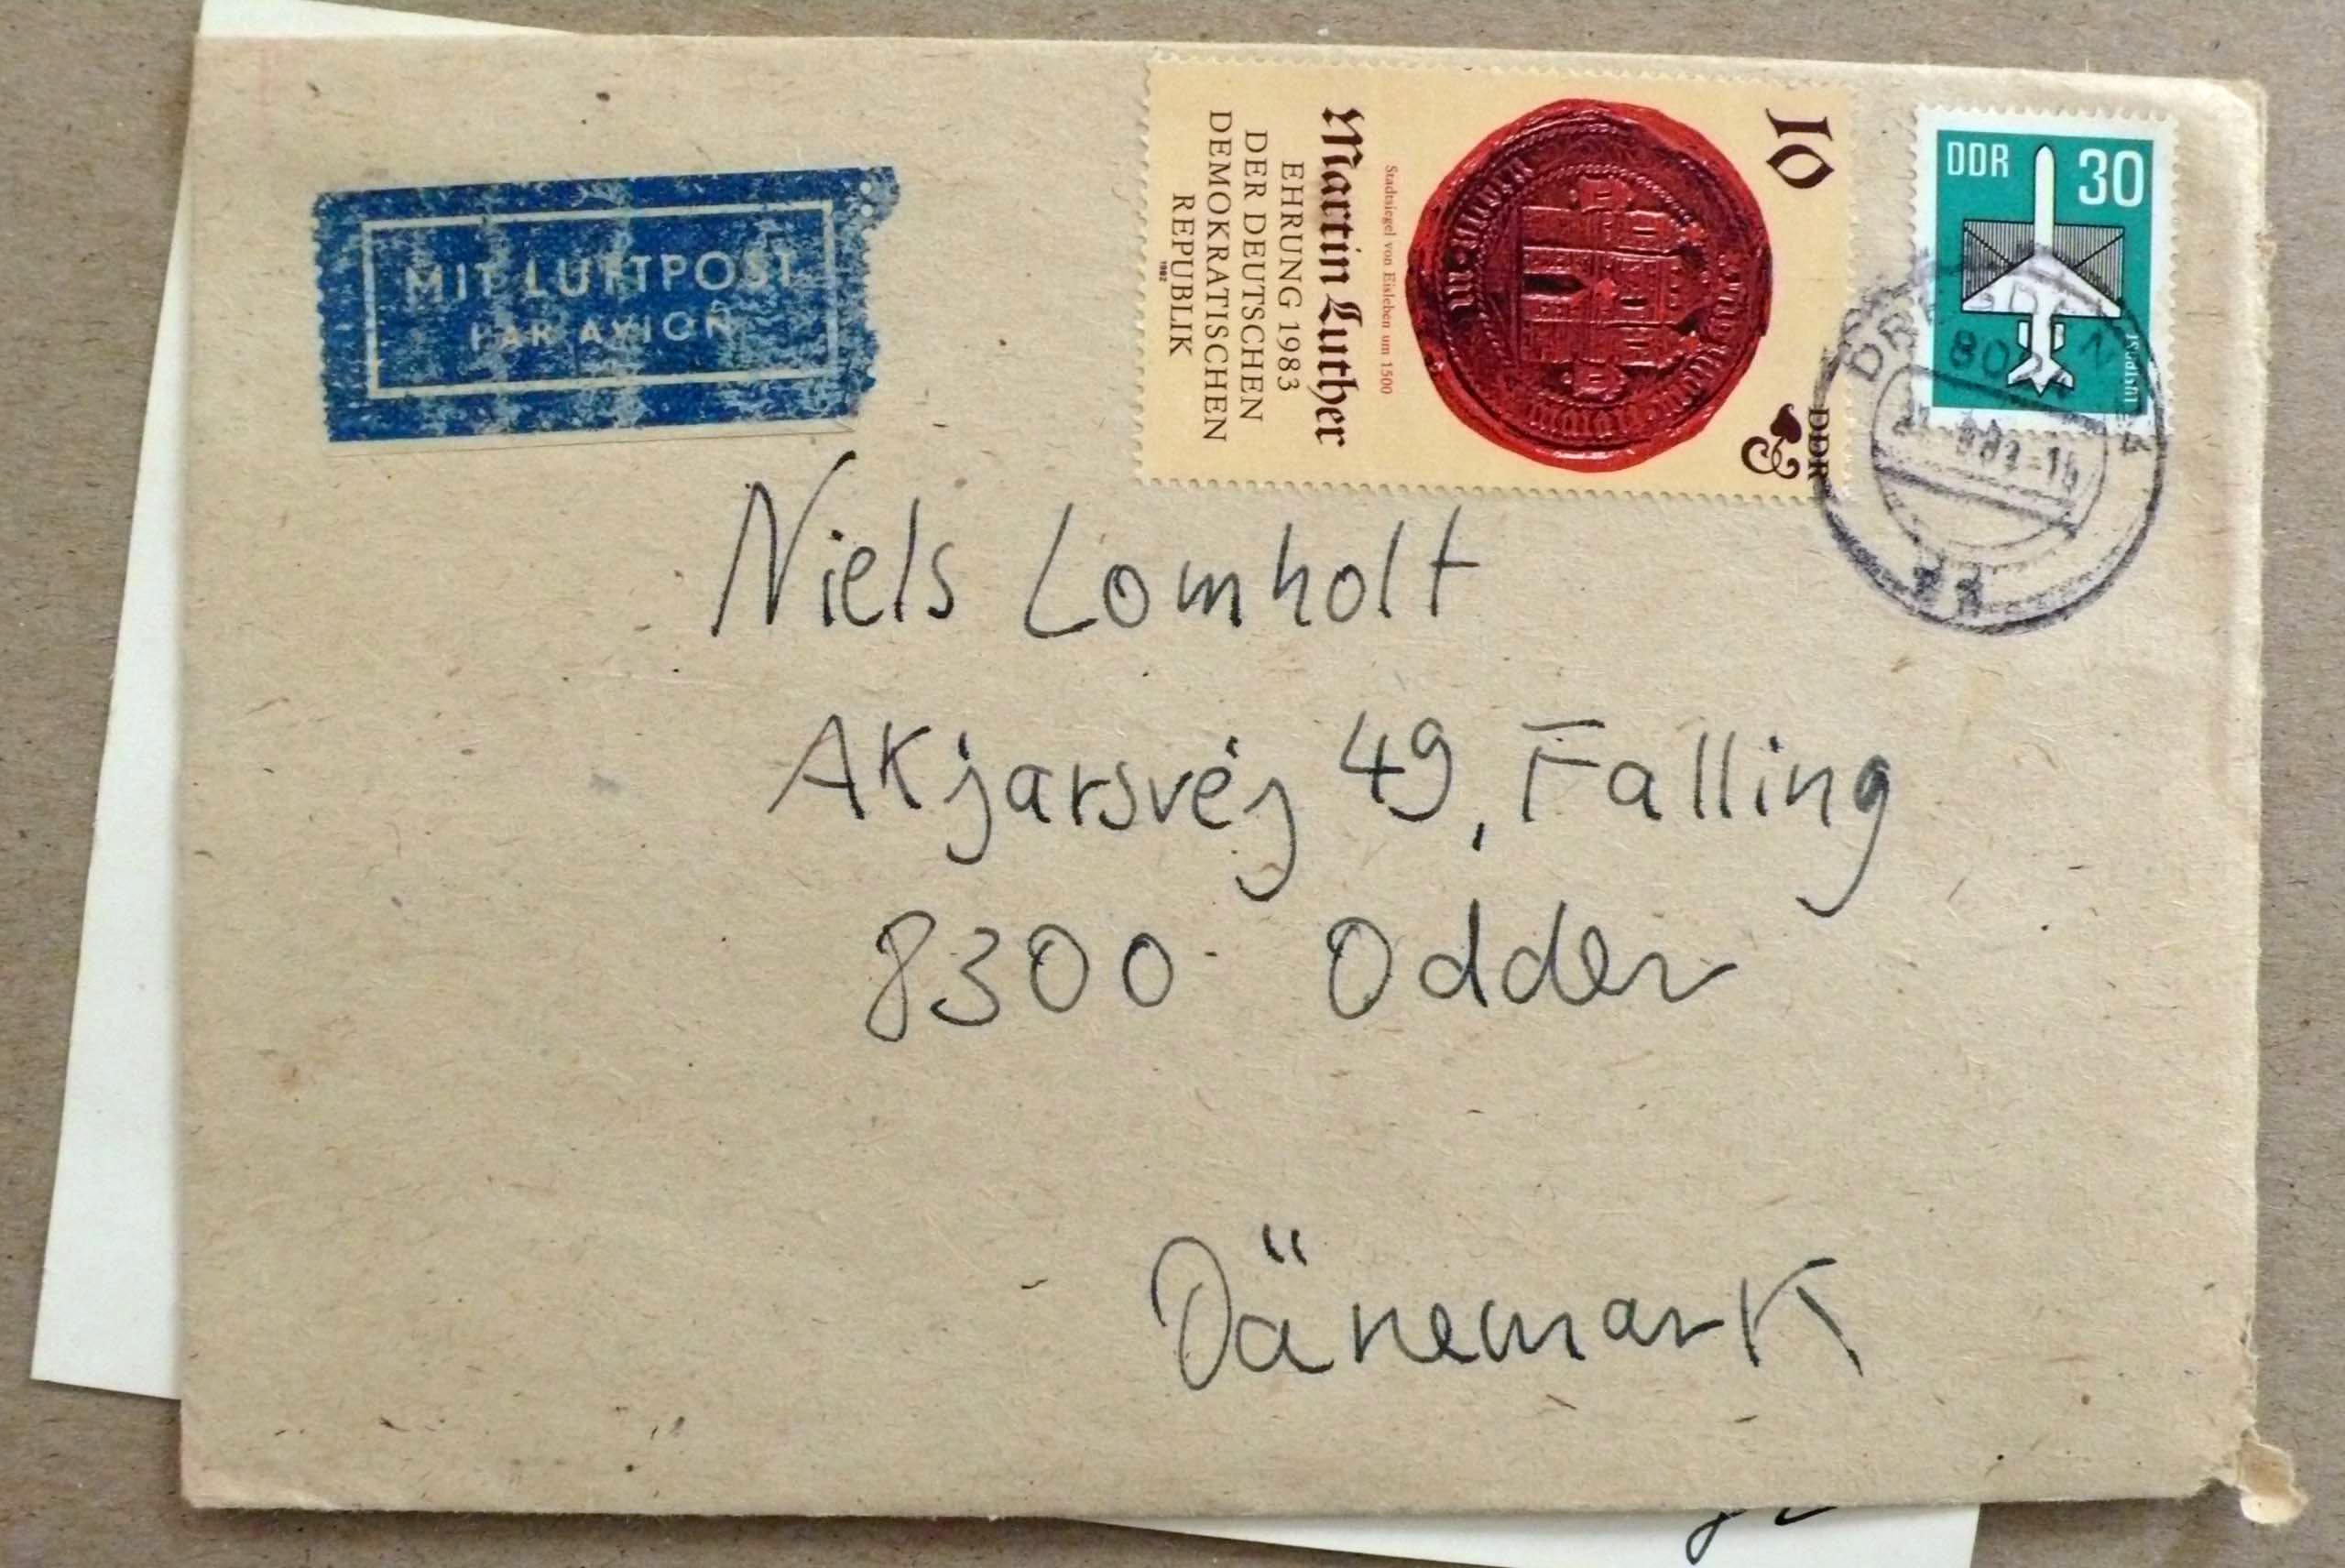 MIT LUFTPOST
PAR AVION
10
Stadtsiegel von Eisleben um 1500
Martin Luther
EHRUNG 1983
DER DEUTSCHEN
DEMOKRATISCHEN
REPUBLIK
1982
DDR
DDR 30
Luftpost
DRESDEN
Niels Lomholt
Akjarsvej 49, Falling
8300 Odder
Dänemark